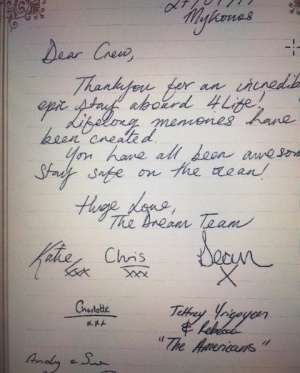 Mykonos
Dear Crew,
Thankyou for an incredib
epic stay aboard 4 Life!
Lifelong memories have
been created.
You have all been awesom
Stay safe on the ocean!
Huge Love,
The Dream Team
Katie Chris
xxx xxx
X
Charlotte
x.x.x
Jeffrey Yrigoyen
& Rebecca
"The Americans"
Andy & Sue